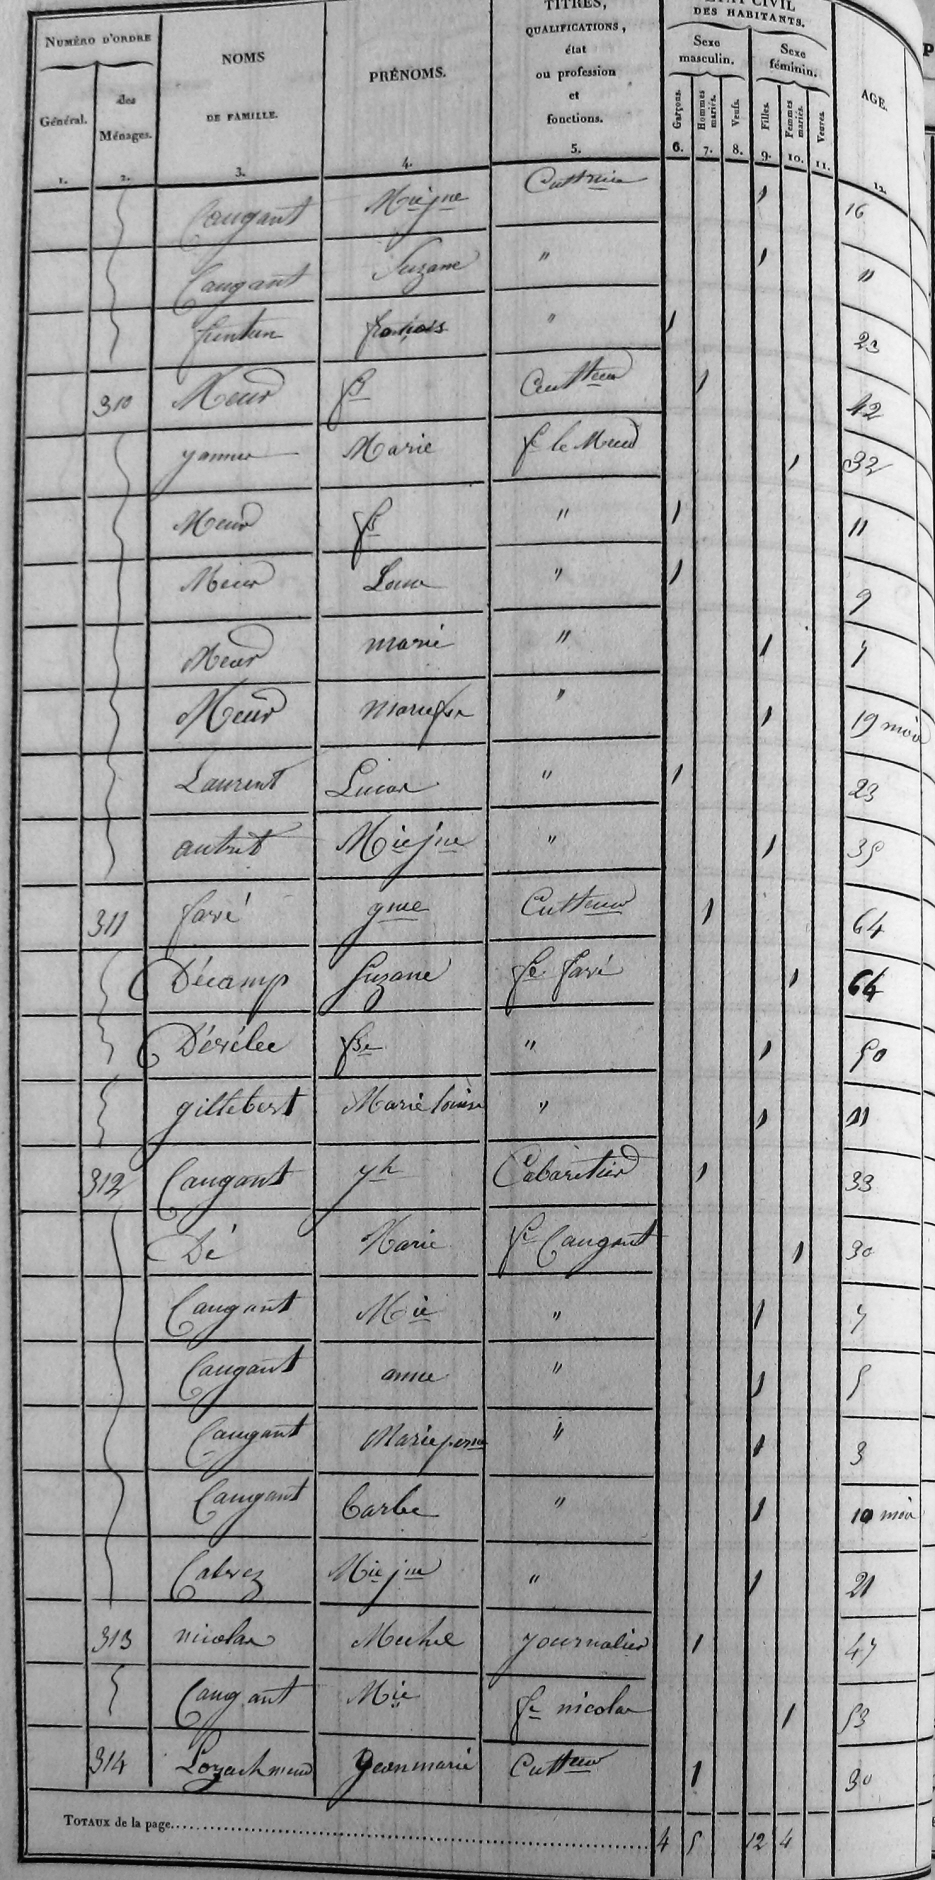 NUMÉRO D'ORDRE
Général. 1.
des Ménages. 2.
NOMS DE FAMILLE. 3.
PRÉNOMS. 4.
TITRES, QUALIFICATIONS, état ou profession et fonctions. 5.
ÉTAT CIVIL DES HABITANTS.
Sexe masculin. Sexe féminin.
Garçons. 6. Hommes mariés. 7. Veufs. 8. Filles. 9. Femmes mariées. 10. Veuves. 11.
AGE. 12.
Caugant Mie jne Cultrice 1 16
Caugant Suzane " 1 "
funtun françois " 1 23
310 Meur fs Culteur 1 42
yannou Marie fe le Meur 1 32
Meur fs " 1 11
Meur Louis " 1 9
Meur marie " 1 7
Meur marie fse " 1 19 mois
Laurent " 1 23
autret Mie jne " 1 35
311 favé gme Culteur 1 64
Décamp Suzane fe favé 1 64
Dérélec fse " 1 50
gillebert Marie louise " 1 11
312 Caugant yh Cabaretier 1 33
Dé Marie fe Caugant 1 30
Caugant Mie " 1 7
Caugant anne " 1 5
Caugant Marie " 1 3
Caugant barbe " 1 10 mois
Cabrez Mie jne " 1 21
313 nicolas Michel journalier 1 47
Caugant Mie fe nicolas 1 53
314 Lozachmeur jean marie Culteur 1 30
TOTAUX de la page 4 5 12 4